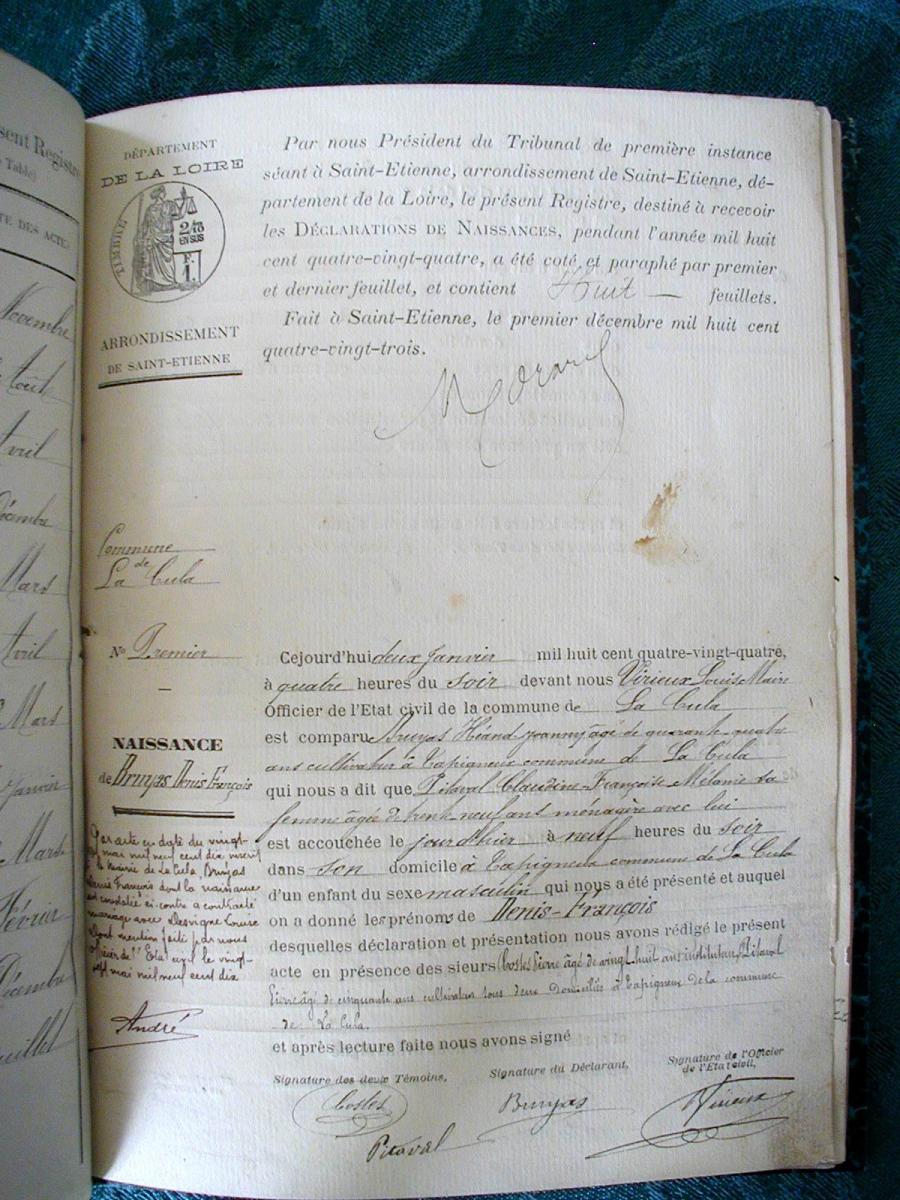 sent Registre
Table)
TE DES ACTES
Novembre
Août
Avril
Décembre
Mars
Avril
Mars
Janvier
Mars
Février
Décembre
Juillet
DÉPARTEMENT
DE LA LOIRE
TIMBRE
2/10
EN SUS
F.
1.
ARRONDISSEMENT
DE SAINT-ETIENNE
Par nous Président du Tribunal de première instance
séant à Saint-Etienne, arrondissement de Saint-Etienne, dé-
partement de la Loire, le présent Registre, destiné à recevoir
les DÉCLARATIONS DE NAISSANCES, pendant l'année mil huit
cent quatre-vingt-quatre, a été coté et paraphé par premier
et dernier feuillet, et contient Huit feuillets.
Fait à Saint-Etienne, le premier décembre mil huit cent
quatre-vingt-trois.
Commune
de
La Cula
No Premier
NAISSANCE
de Bruyas Denis François
Par acte en date du vingt-
sept mai mil neuf cent dix inscrit
à la mairie de La Cula, Bruyas
Denis François dont la naissance
est constatée ci-contre a contracté
mariage avec Desvigne Louise
Dont mention faite par nous
officier de l'Etat civil le vingt-
sept mai mil neuf cent dix
André
Cejourd'hui deux Janvier mil huit cent quatre-vingt-quatre,
à quatre heures du soir devant nous Virieux Louis Maire
Officier de l'Etat civil de la commune de La Cula
est comparu Bruyas Jeanny âgé de quarante-quatre
ans cultivateur à Tapigneux commune de La Cula
qui nous a dit que Pitaval Claudine-Françoise Mélanie sa
femme âgée de trente-neuf ans ménagère avec lui
est accouchée le jour d'hier à neuf heures du soir
dans son domicile à Tapigneux commune de La Cula
d'un enfant du sexe masculin qui nous a été présenté et auquel
on a donné les prénoms de Denis-François
desquelles déclaration et présentation nous avons rédigé le présent
acte en présence des sieurs Costes Pierre âgé de vingt huit ans instituteur, Pitaval
Pierre âgé de cinquante ans cultivateur tous deux domiciliés à Tapigneux de la commune
de La Cula.
et après lecture faite nous avons signé
Signature des deux Témoins,
Signature du Déclarant,
Signature de l'Officier
de l'Etat civil,
Costes
Bruyas
Virieux
Pitaval